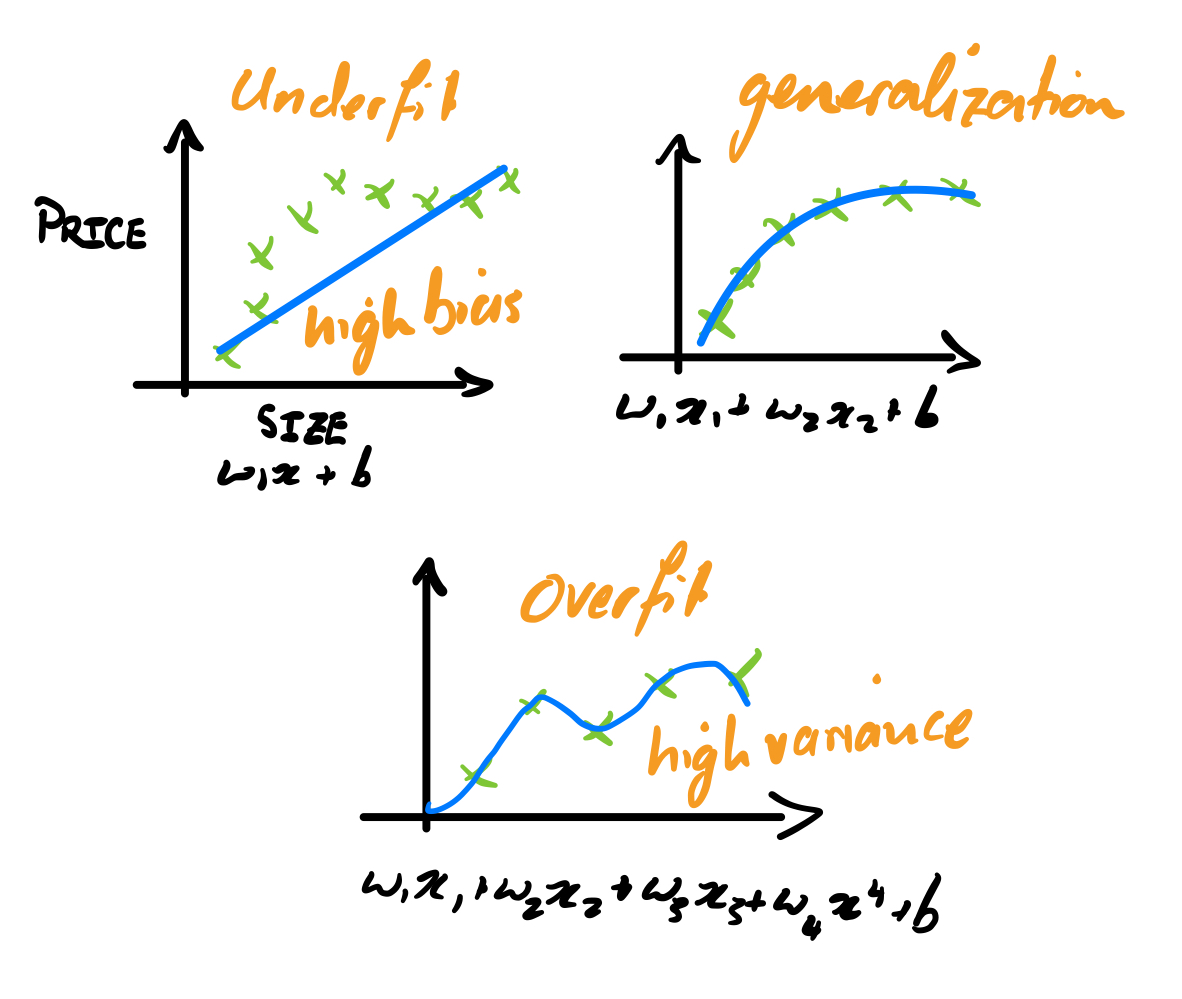 Underfit
PRICE
high bias
SIZE
w₁x + b
generalization
w₁x₁ + w₂x₂ + b
Overfit
high variance
w₁x₁ + w₂x₂ + w₃x₃ + w₄x⁴ + b